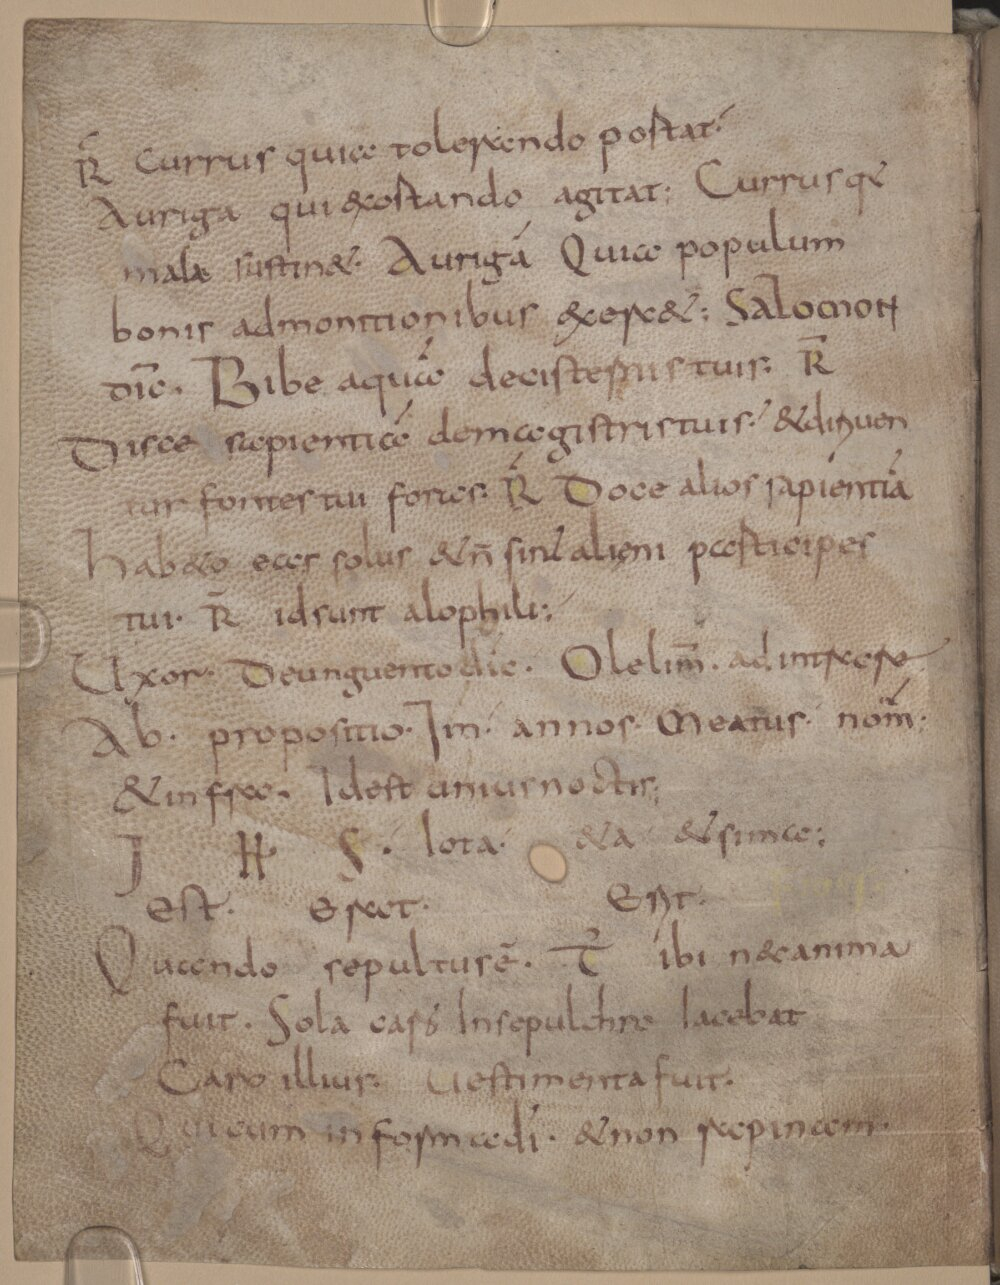 R̄ Currus quia tolerando portat·
Auriga qui exortando agitat; Currus qui
mala sustin&· Aurigā Quia populum
bonis admonitionibus &exerc&; Salomon
dic̄· Bibe aquā decisternis tuis· R̄
Disce sapientiā demagistris tuis· &diriven
tur fontes tui foras· R̄ Doce alios sapientiā
hab&o eas solus &n̄ sint alieni participes
tui· R̄ id sunt alophili;
Uxor· Deunguento dic̄· Ole lim̄· ad
Ab· propositio· Im· annos· Meatus· nom̄;
&infra· Idest unius noctis;
I H S· Iota· &a &sima;
Est· Erat· Erit·
Quando sepultus ē· T̄ ibi nec anima
fuit· Sola caro Insepulchro Iacebat
Caro illius· Uestimenta fuit·
Qui cum in forma dī· &non rapinam·